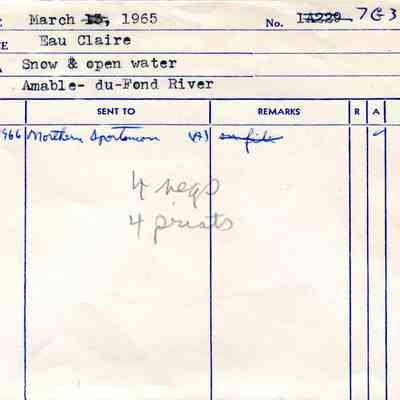 March 15, 1965 No. 1A229 7G3
Eau Claire
Snow & open water
Amable- du-Fond River
SENT TO REMARKS R A
1966 Northern Sportsman (A) on file
4 negs
4 prints